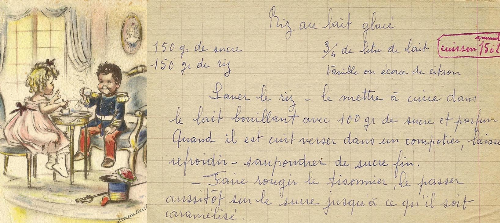 Riz au lait glacé
150 gr de sucre 3/4 de litre de lait cuisson 15
150 gr de riz Vanille ou écorce de citron
Laver le riz - le mettre à cuire dans
le lait bouillant avec 100 gr du sucre et parfum
Quand il est cuit verser dans un compotier, laisser
refroidir - saupoudrer de sucre fin.
Faire rougir le tisonnier le passer
aussitôt sur le sucre jusqu'à ce qu'il soit
caramélisé